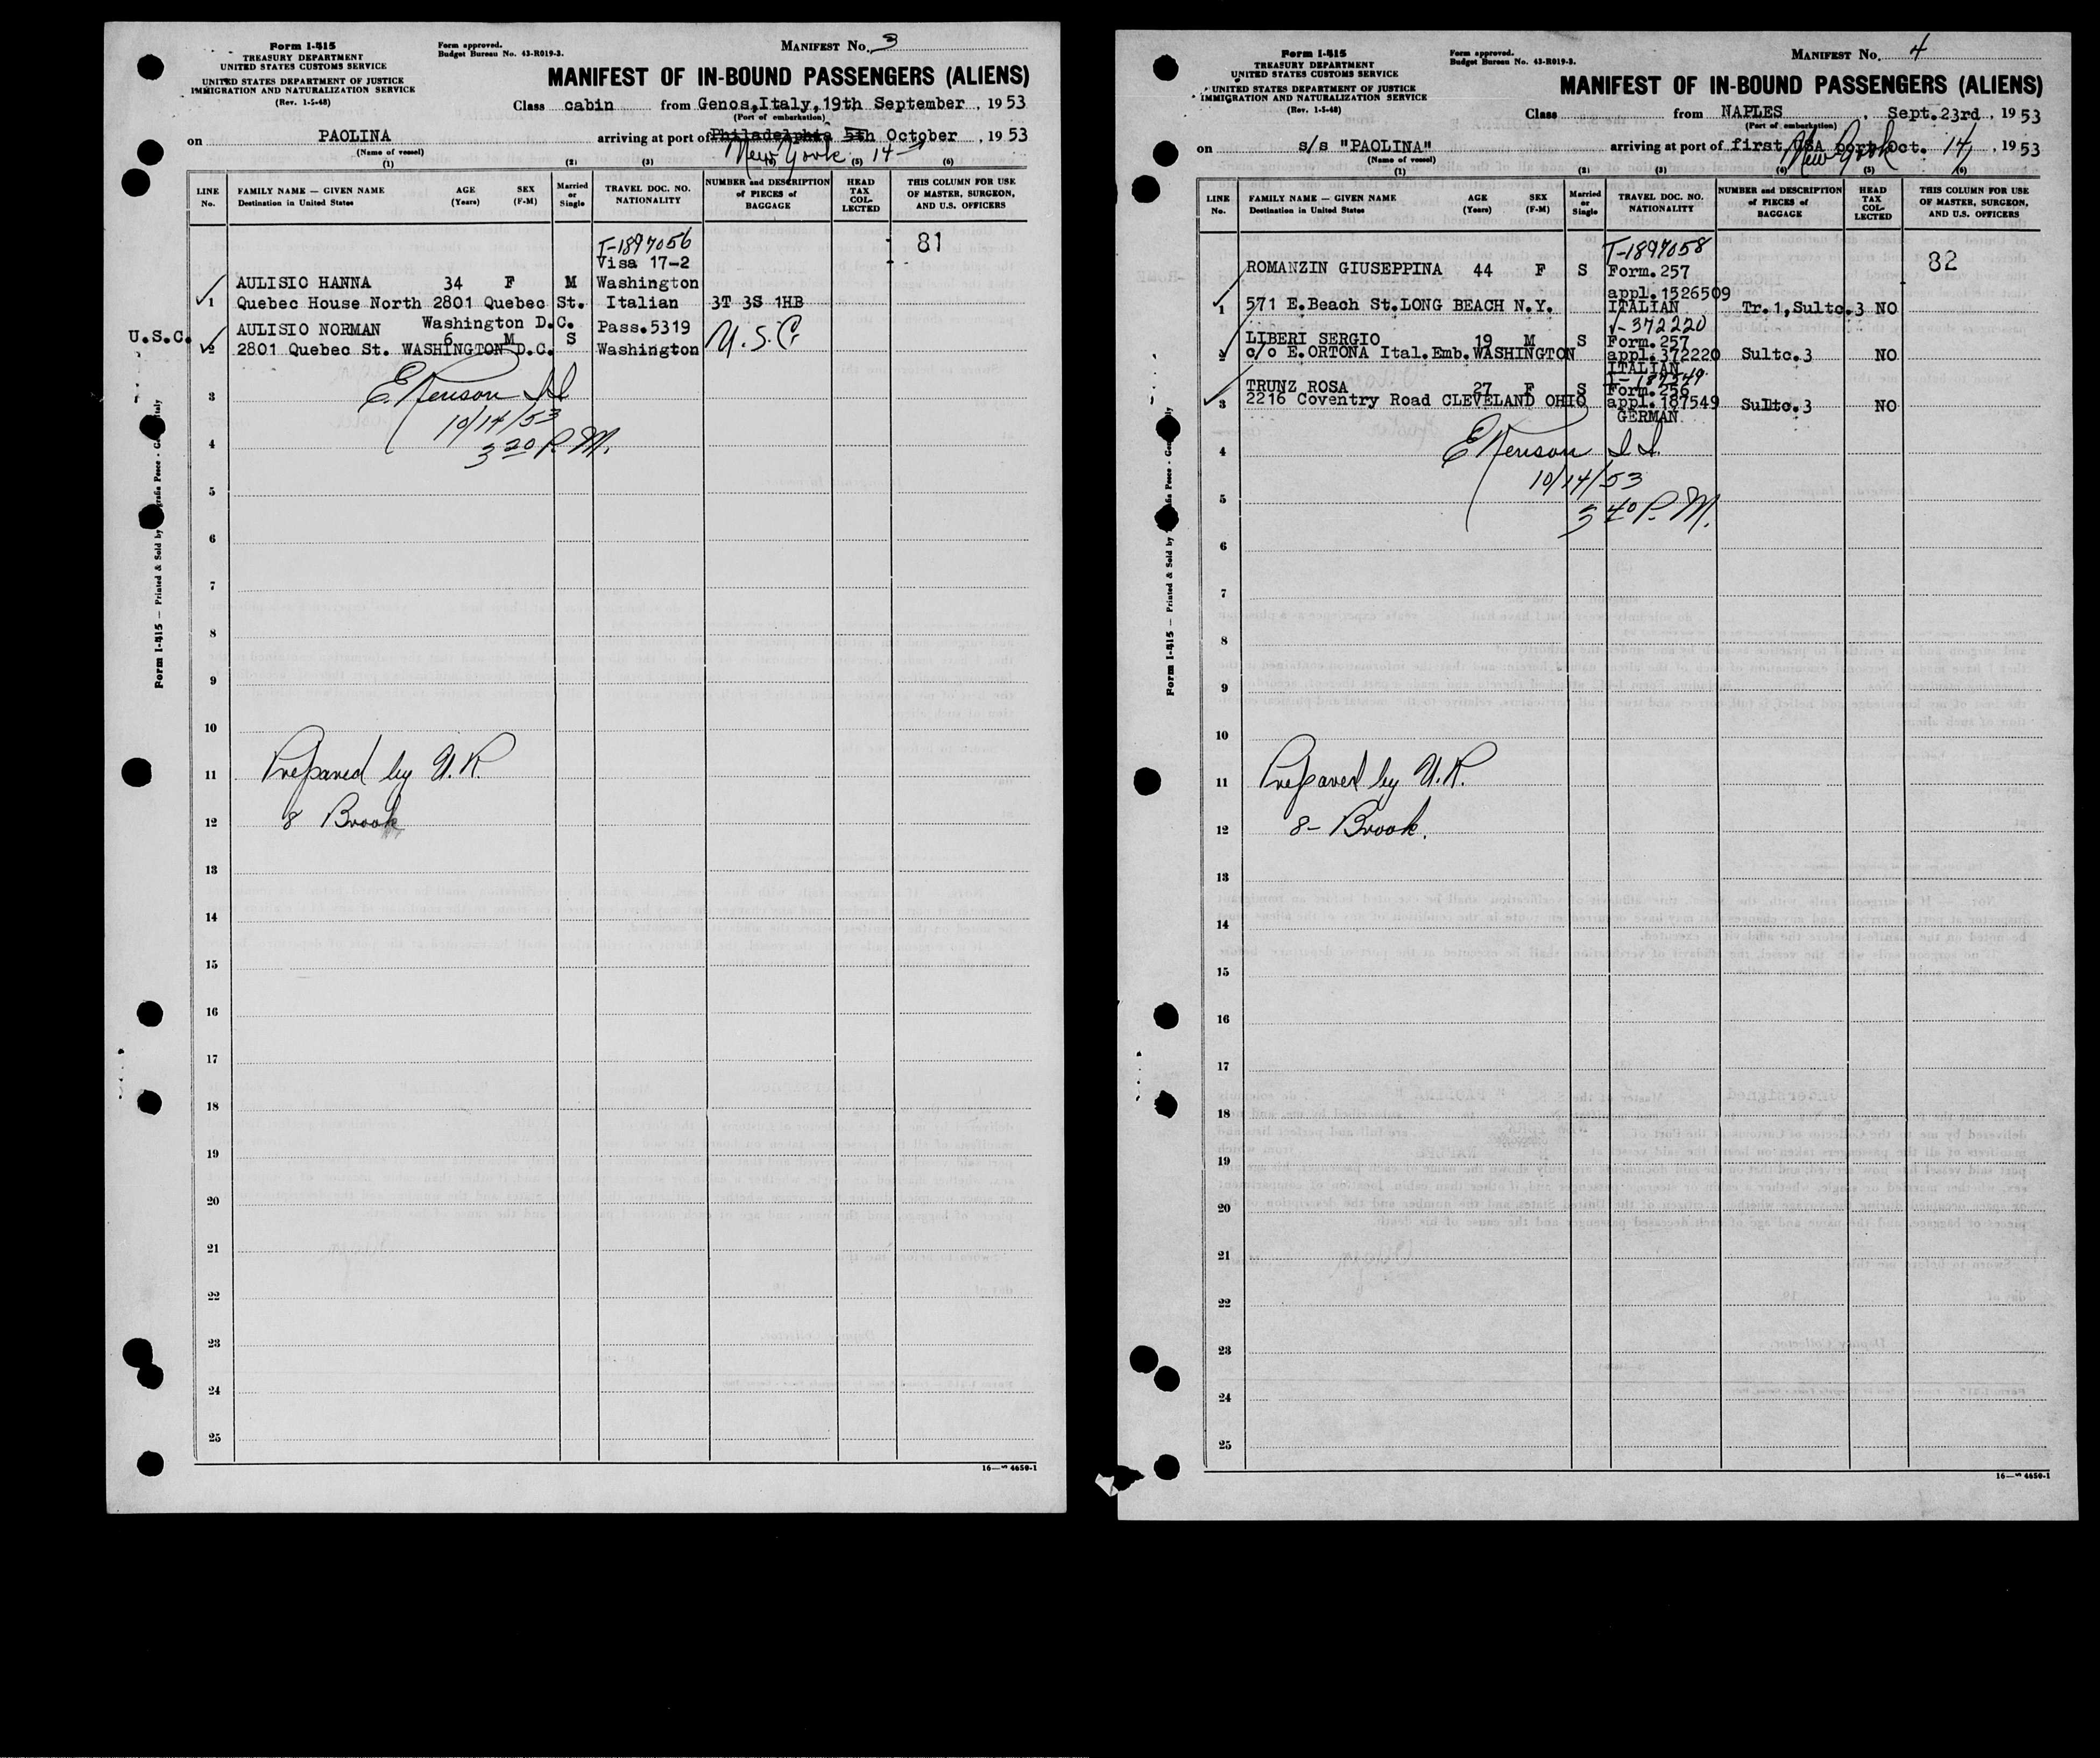 Form I-415
TREASURY DEPARTMENT
UNITED STATES CUSTOMS SERVICE
UNITED STATES DEPARTMENT OF JUSTICE
IMMIGRATION AND NATURALIZATION SERVICE
(Rev. 1-5-48)
Form approved.
Budget Bureau No. 43-R019-3.
MANIFEST No. 3
MANIFEST OF IN-BOUND PASSENGERS (ALIENS)
Class cabin from Genoa, Italy, 19th September, 1953
(Port of embarkation)
on PAOLINA arriving at port of Philadelphia 5th October, 1953
(Name of vessel) New York 14
(1) (2) (3) (4) (5) (6)
LINE No. FAMILY NAME — GIVEN NAME Destination in United States AGE (Years) SEX (F-M) Married or Single TRAVEL DOC. NO. NATIONALITY NUMBER and DESCRIPTION of PIECES of BAGGAGE HEAD TAX COL-LECTED THIS COLUMN FOR USE OF MASTER, SURGEON, AND U.S. OFFICERS
T-1897056 81
Visa 17-2
AULISIO HANNA 34 F M Washington
1 Quebec House North 2801 Quebec St. Italian 3T 3S 1HB
Washington D.C.
U.S.C. AULISIO NORMAN 6 M S Pass.5319 U.S.C.
2 2801 Quebec St. WASHINGTON D.C. Washington
3
10/14/53
4
3 20 P.M.
5
6
7
8
9
10
11 Prepared by U.R.
12 8 Brook
13
14
15
16
17
18
19
20
21
22
23
24
25
16—4650-1
Form I-415 — Printed & Sold by
Form I-415
TREASURY DEPARTMENT
UNITED STATES CUSTOMS SERVICE
UNITED STATES DEPARTMENT OF JUSTICE
IMMIGRATION AND NATURALIZATION SERVICE
(Rev. 1-5-48)
Form approved.
Budget Bureau No. 43-R019-3.
MANIFEST No. 4
MANIFEST OF IN-BOUND PASSENGERS (ALIENS)
Class from NAPLES, Sept.23rd, 1953
(Port of embarkation)
on s/s "PAOLINA" arriving at port of first USA port Oct. 14, 1953
(Name of vessel) New York
(1) (2) (3) (4) (5) (6)
LINE No. FAMILY NAME — GIVEN NAME Destination in United States AGE (Years) SEX (F-M) Married or Single TRAVEL DOC. NO. NATIONALITY NUMBER and DESCRIPTION of PIECES of BAGGAGE HEAD TAX COL-LECTED THIS COLUMN FOR USE OF MASTER, SURGEON, AND U.S. OFFICERS
T-1897058 82
ROMANZIN GIUSEPPINA 44 F S Form.257
appl.1526509
1 571 E.Beach St.LONG BEACH N.Y. ITALIAN Tr.1,Sultc.3 NO
V-372220
LIBERI SERGIO 19 M S Form.257
2 c/o E.ORTONA Ital.Emb.WASHINGTON appl.372220 Sultc.3 NO
ITALIAN
I-187549
TRUNZ ROSA 27 F S Form.256
3 2216 Coventry Road CLEVELAND OHIO appl.187549 Sultc.3 NO
GERMAN
4
10/14/53
5
3 40 P.M.
6
7
8
9
10
11 Prepared by U.R.
12 8- Brook.
13
14
15
16
17
18
19
20
21
22
23
24
25
16—4650-1
Form I-415 — Printed & Sold by